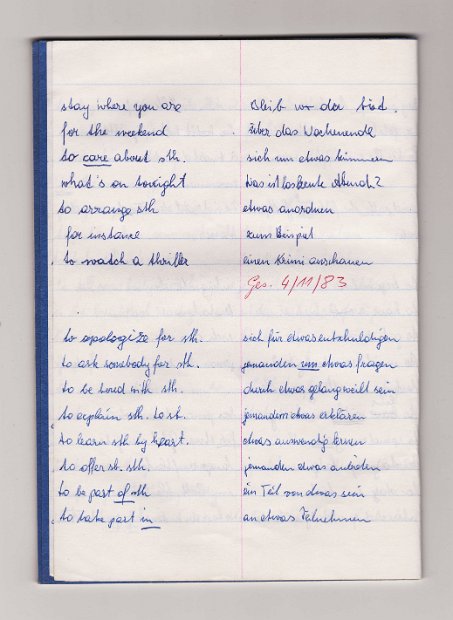 stay where you are Bleib wo du bist.
for the weekend über das Wochenende
to care about sth. sich um etwas kümmern
what's on tonight Was ist los heute Abend?
to arrange sth etwas anordnen
for instance zum Beispiel
to watch a thriller einen Krimi anschauen
Ges. 4/11/83
to apologize for sth. sich für etwas entschuldigen
to ask somebody for sth. jemanden um etwas fragen
to be bored with sth. durch etwas gelangweilt sein
to explain sth. to sb. jemandem etwas erklären
to learn sth by heart. etwas auswendig lernen
to offer sb. sth. jemanden etwas anbieten
to be part of sth ein Teil von etwas sein
to take part in an etwas teilnehmen